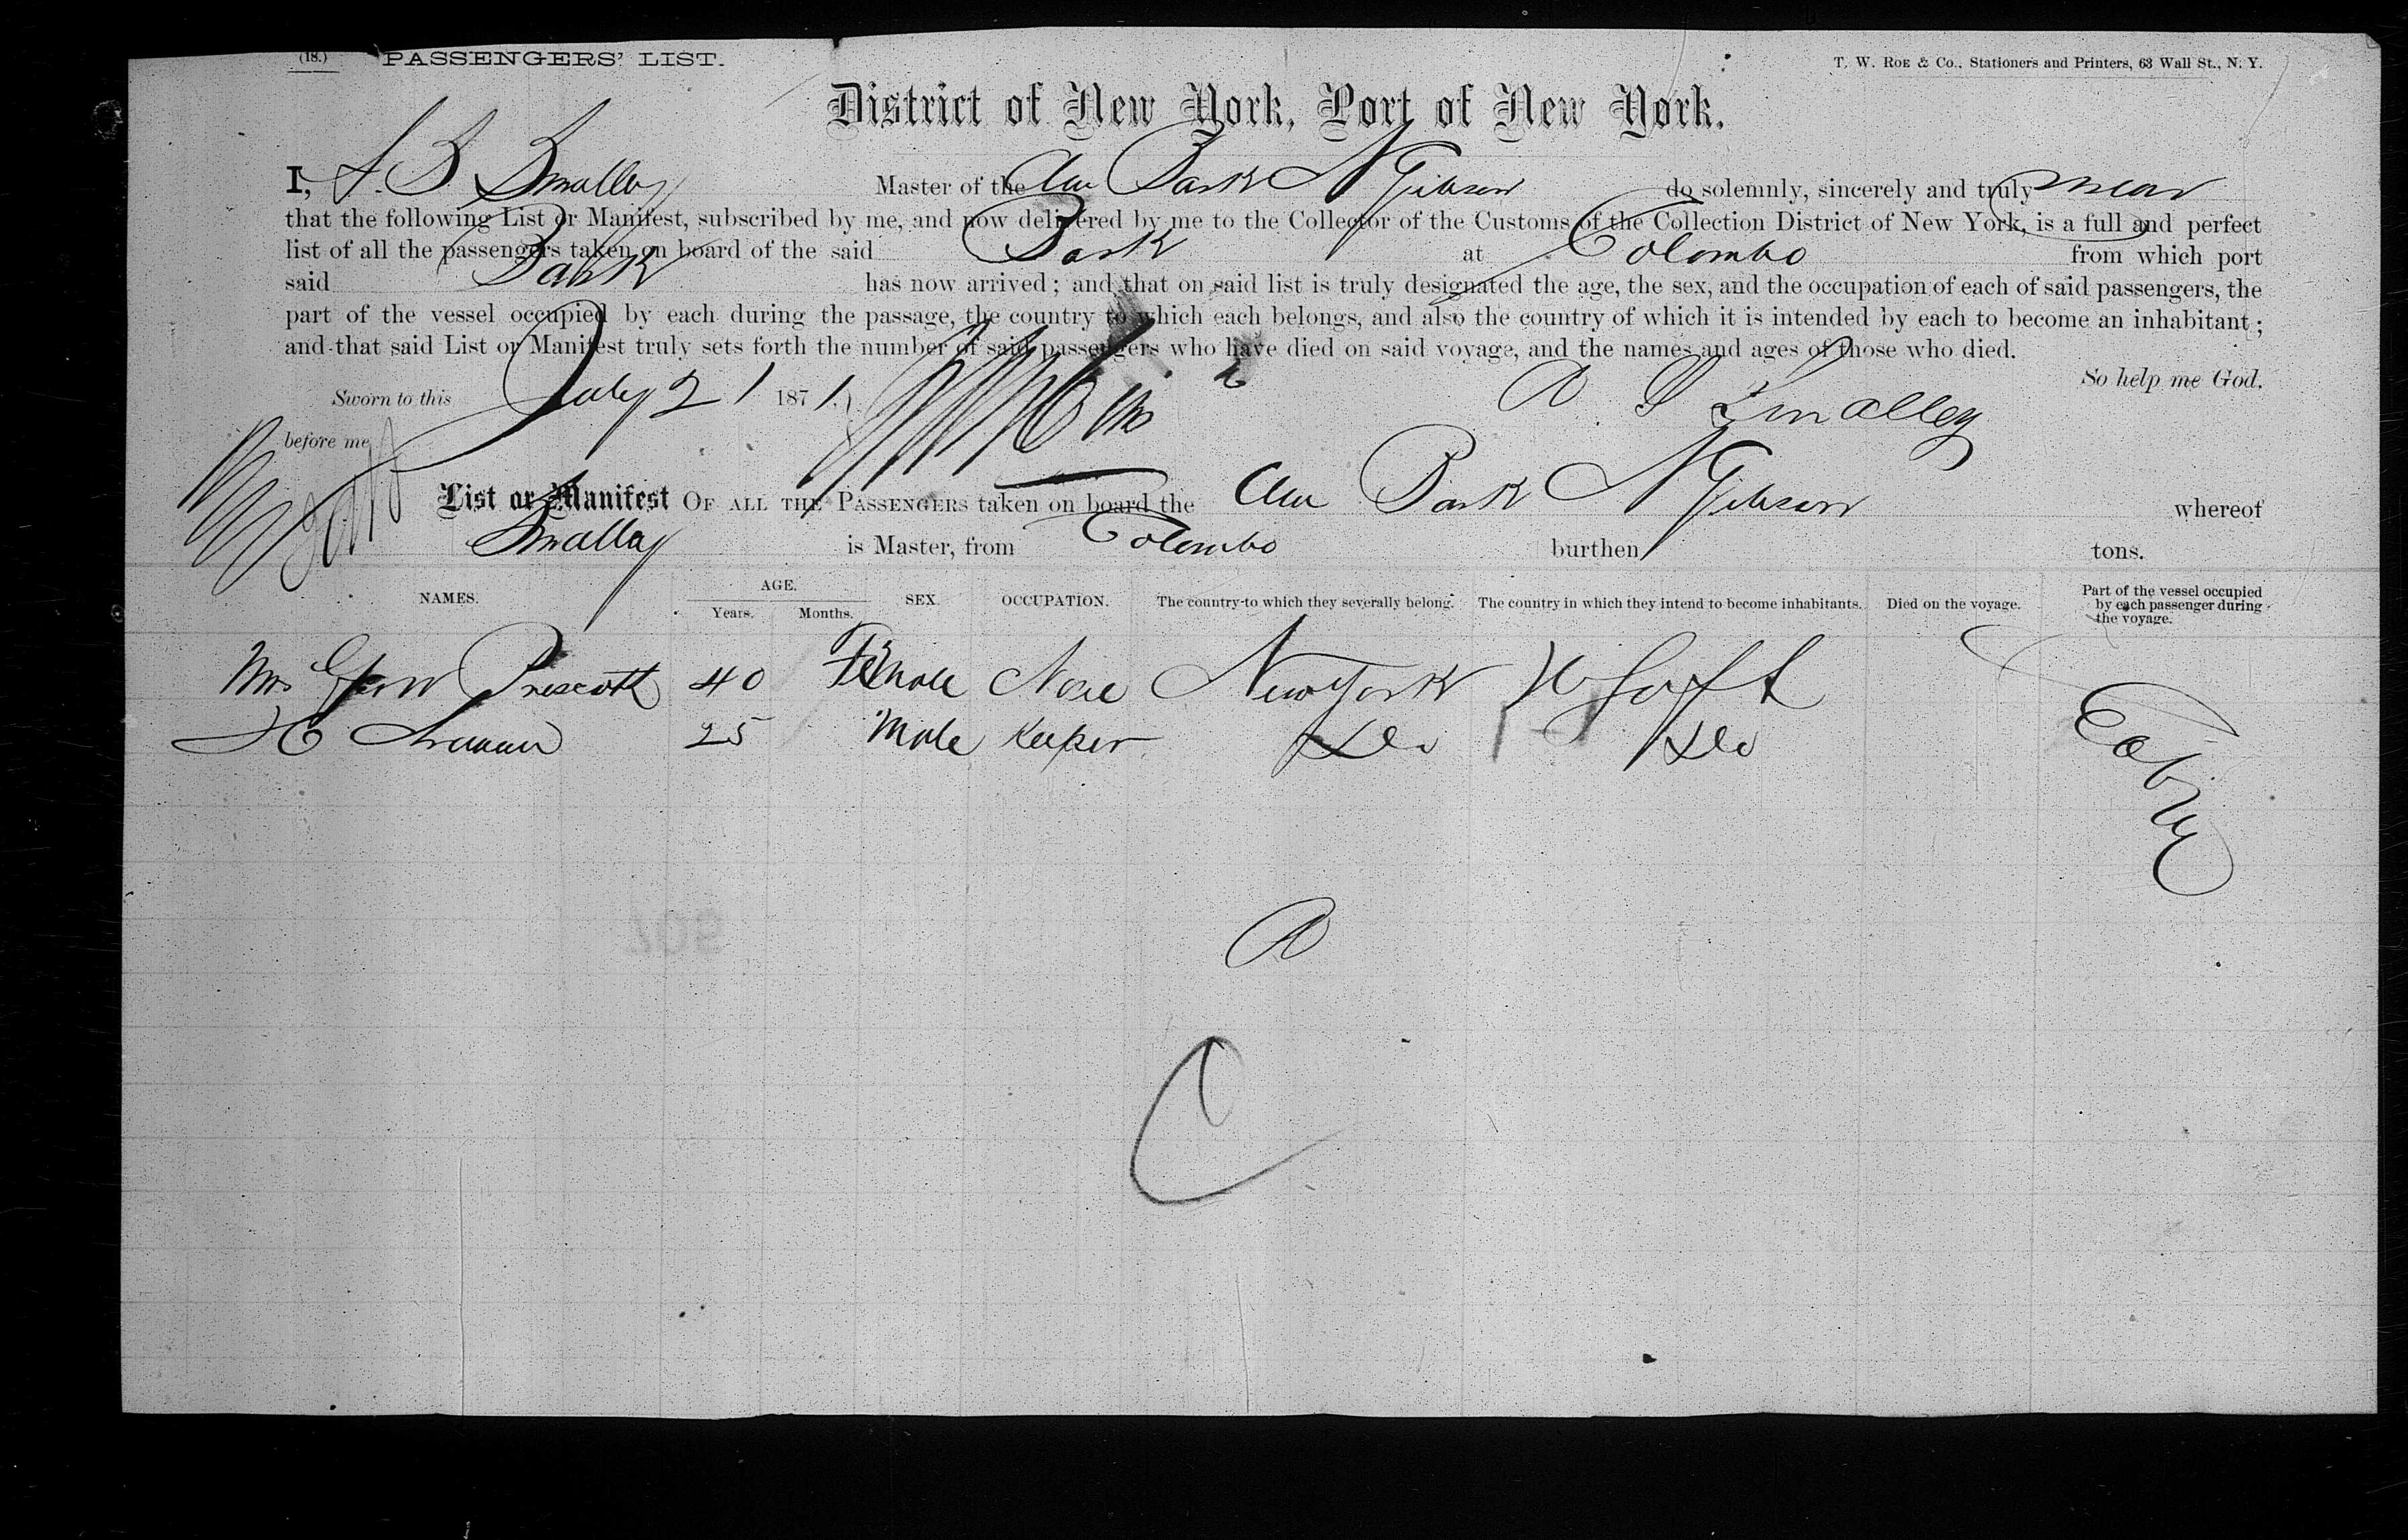 (18.) PASSENGERS' LIST.
T. W. Roe & Co., Stationers and Printers, 63 Wall St., N. Y.
District of New York, Port of New York.
I, Smalley Master of the Am Bark N Gibson do solemnly, sincerely and truly swear
that the following List or Manifest, subscribed by me, and now delivered by me to the Collector of the Customs of the Collection District of New York, is a full and perfect
list of all the passengers taken on board of the said Bark at Colombo from which port
said Bark has now arrived; and that on said list is truly designated the age, the sex, and the occupation of each of said passengers, the
part of the vessel occupied by each during the passage, the country to which each belongs, and also the country of which it is intended by each to become an inhabitant;
and that said List or Manifest truly sets forth the number of said passengers who have died on said voyage, and the names and ages of those who died.
So help me God.
Sworn to this July 21 1871 Smalley
before me
List or Manifest OF ALL THE PASSENGERS taken on board the Am Bark N Gibson whereof
Smalley is Master, from Colombo burthen tons.
NAMES. AGE. Years. Months. SEX. OCCUPATION. The country to which they severally belong. The country in which they intend to become inhabitants. Died on the voyage. Part of the vessel occupied by each passenger during the voyage.
Mrs Prescott 40 Female None New York
H 25 Male Keeper Do Do
Cabin
C